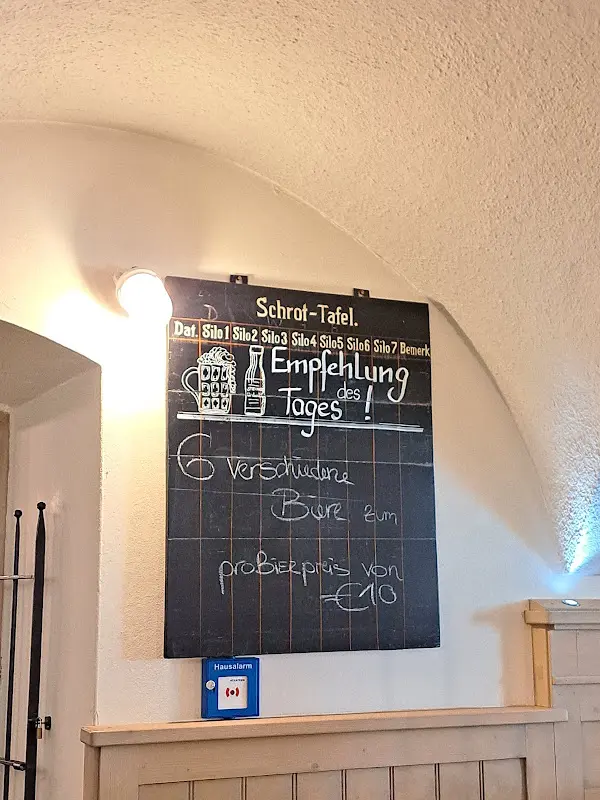 Schrot-Tafel.
Dat. Silo 1 Silo 2 Silo 3 Silo 4 Silo 5 Silo 6 Silo 7 Bemerk
Empfehlung
des
Tages !
6 verschiedene
Biere zum
proBierpreis von
€10
Hausalarm